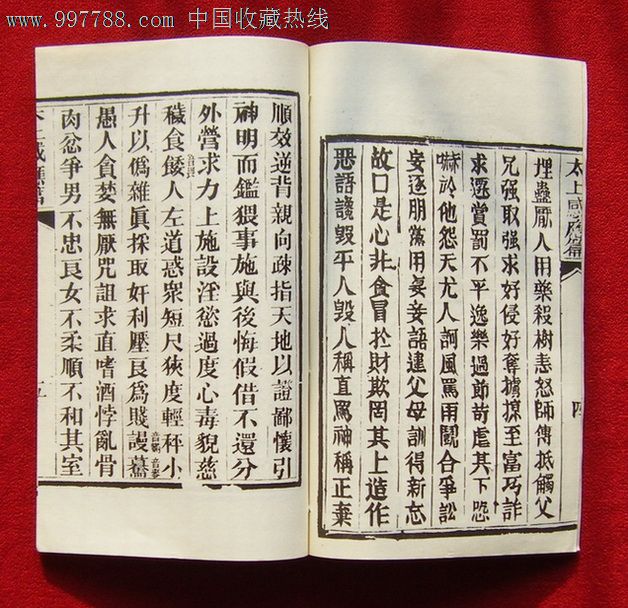 www.997788.com 中国收藏热线
太上感應篇
四
埋蠱厭人用藥殺樹恚怒師傅抵觸父
兄强取强求好侵好奪擄掠至富巧詐
求遷賞罰不平逸樂過節苛虐其下恐
嚇於他怨天尤人訶風罵雨鬭合爭訟
妄逐朋黨用妻妾語違父母訓得新忘
故口是心非貪冒於財欺罔其上造作
惡語讒毀平人毀人稱直罵神稱正棄
順效逆背親向疎指天地以證鄙懷引
神明而鑑猥事施與後悔假借不還分
外營求力上施設淫慾過度心毒貌慈
穢食餧人左道惑衆短尺狹度輕秤小
升以僞雜眞採取奸利壓良爲賤謾驀
愚人貪婪無厭咒詛求直嗜酒悖亂骨
肉忿爭男不忠良女不柔順不和其室
太上感應篇
五